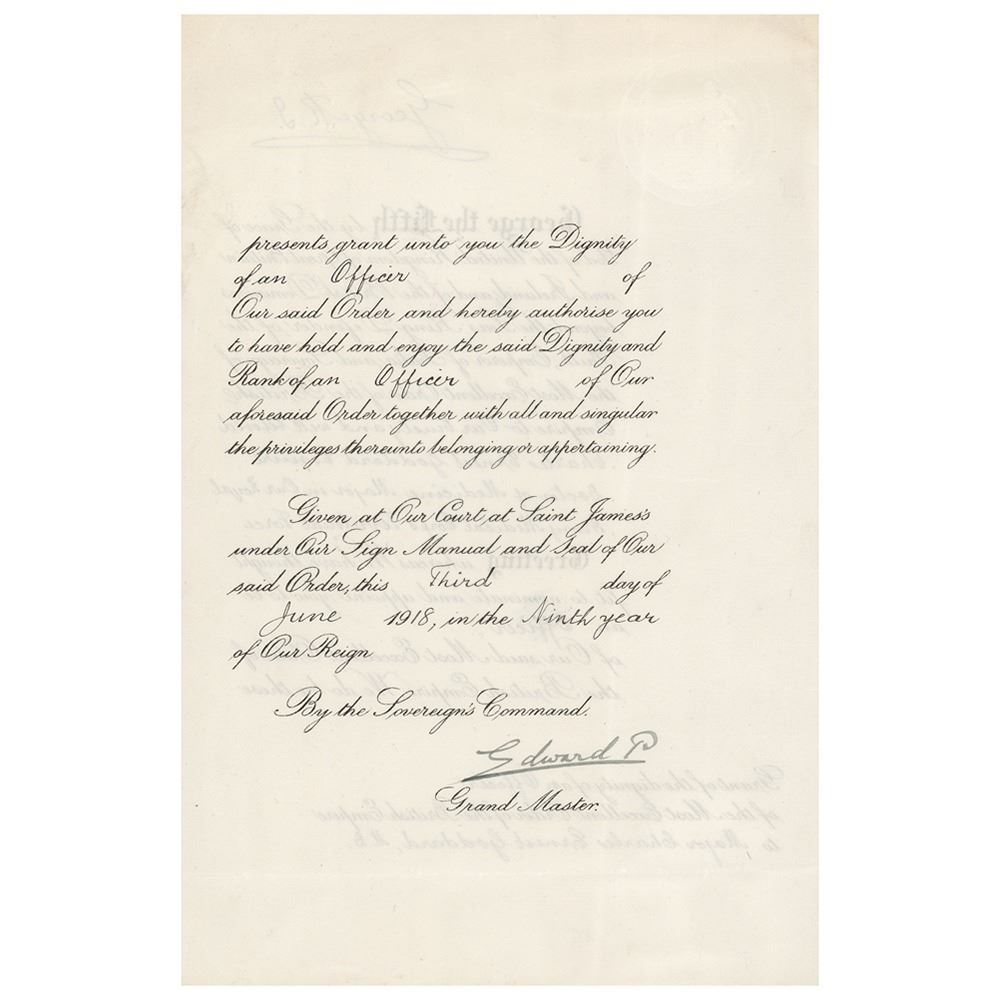 presents, grant unto you the Dignity
of an Officer of
Our said Order, and hereby authorise you
to have hold and enjoy the said Dignity and
Rank of an Officer of Our
aforesaid Order together with all and singular
the privileges thereunto belonging or appertaining.
Given at Our Court at Saint James's
under Our Sign Manual and Seal of Our
said Order, this Third day of
June 1918, in the Ninth year
of Our Reign
By the Sovereign's Command.
Edward P
Grand Master.